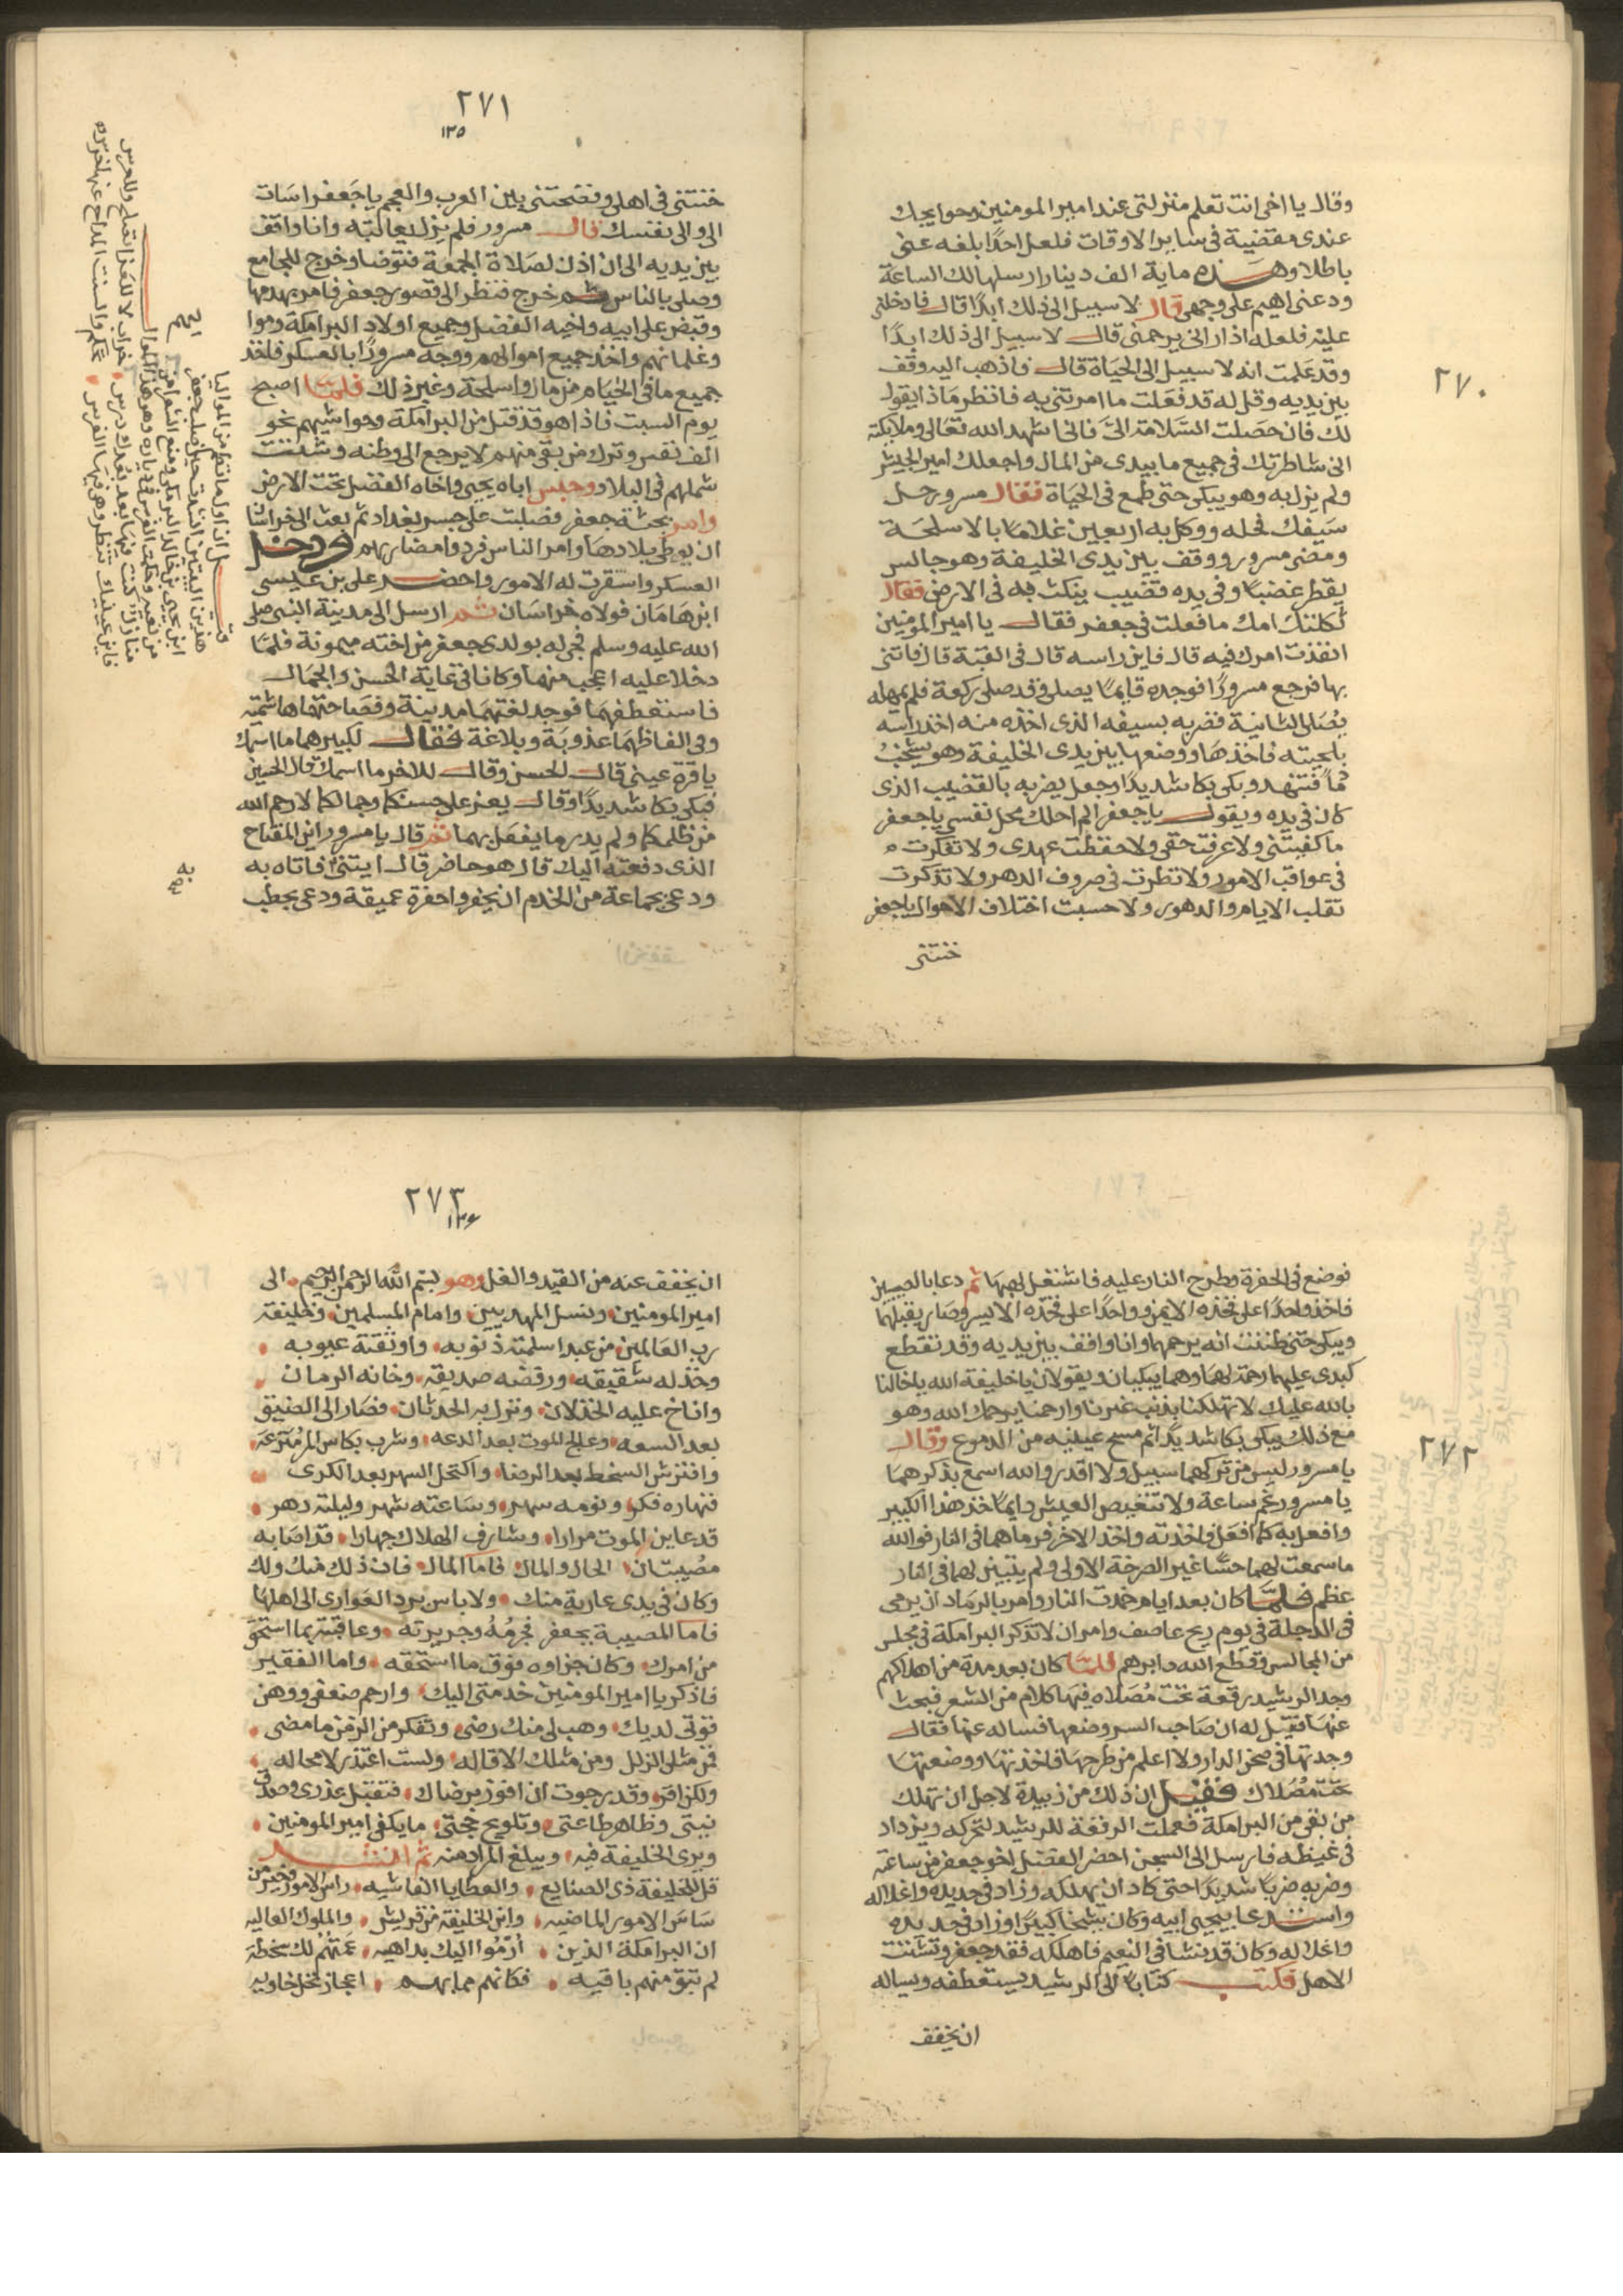 ٢٧٠
وقال يا اخى انت تعلم منزلتى عند امير المومنين وحوايجك
عندى مقضية فى ساير الاوقات فلعل احدًا بلغه عنى
باطلا وهذه ماية الف دينار ارسلها لك الساعة
ودعنى اهيم على وجهى قال لا سبيل الى ذلك ابدًا قال فادخلنى
عليه فلعله اذا رانى يرحمنى قال لا سبيل الى ذلك ابدًا
وقد علمت انه لا سبيل الى الحياة قال فاذهب اليه وقف
بين يديه وقل له قد فعلت ما امرتنى به فانظر ماذا يقول
لك فان حصلت السّلامة الىّ فانى اشهد الله تعالى وملايكته
انى شاطرتك فى جميع ما بيدى من المال واجعلك امير الجيش
ولم يزل به وهو يبكى حتى طمع فى الحياة فقال مسرور حل
سيفك فحله ووكل به اربعين غلامًا بالاسلحة
ومضى مسرور ووقف بين يدى الخليفة وهو جالس
يقطر غضبًا وفى يده قضيب ينكث به فى الارض فقال
ثكلتك امك ما فعلت فى جعفر فقال يا امير المومنين
انفذت امرك فيه قال فاين راسه قال فى القبة قال فاتنى
بها فرجع مسرورًا فوجده قايمًا يصلى وقد صلى ركعة فلم يمهله
يصلى الثانية فضربه بسيفه الذى اخذه منه اخذ راسه
بلحيته فاخذها ووضعها بين يدى الخليفة وهو يشخب
دمًا فتنهد وبكى بكا شديدًا وجعل يضربه بالقضيب الذى
كان فى يده ويقول يا جعفر الم احلك محل نفسى يا جعفر
ما كفيتنى ولا عرفت حقى ولا حفظت عهدى ولا تفكرت
فى عواقب الامور ولا نظرت فى صروف الدهر ولا تذكرت
تقلب الايام والدهور ولا حسبت اختلاف الاحوال يا جعفر
خنتنى
٢٧١
١٣٥
خنتنى فى اهلى وفضحتنى بين العرب والعجم يا جعفر اسات
الى والى نفسك قال مسرور فلم يزل يعاتبه وانا واقف
بين يديه الى ان اذن لصلاة الجمعة فتوضا وخرج للجامع
وصلى بالناس ثم خرج فنظر الى قصور جعفر فامر بهدمها
وقبض على ابيه واخيه الفضل وجميع اولاد البرامكة وموا
وغلمانهم واخذ جميع اموالهم ووجه مسرورًا بالعسكر فاخذ
جميع ما فى الخيام من مال واسلحة وغير ذلك فلما اصبح
يوم السبت فاذا هو قد قتل من البرامكة وحواشيهم نحو
الف نفس وترك من بقى منهم لا يرجع الى وطنه وشتت
شملهم فى البلاد وحبس اباه يحيى واخاه الفضل تحت الارض
وامر بجثة جعفر فصلبت على جسر بغداد ثم بعث الى خراسان
ان يوطى بلادها وامر الناس فردوا مضاربهم ودخل
العسكر واستقرت له الامور واحضر على بن عيسى
ابن هامان فولاه خراسان ثم ارسل الى مدينة النبى صلى
الله عليه وسلم فجى له بولدى جعفر من اخته ميمونة فلما
دخلا عليه اعجب منهما وكانا فى غاية الحسن والجمال
فاستنطقهما فوجد لغتهما مدينة وفصاحتهما هاشمية
وفى الفاظهما عذوبة وبلاغة فقال لكبيرهما ما اسمك
يا قرة عينى قال الحسن وقال للاخر ما اسمك قال الحسين
فبكى بكا شديدًا وقال يعز على حسنكما وجمالكما لا رحم الله
من ظلمكما ولم يدر ما يفعل بهما ثم قال يا مسرور اين المفتاح
الذى دفعته اليك قال هو حاضر قال ايتنى فاتاه به
ودعى بجماعة من الخدم ان يحفروا حفرة عميقة ودعى بحطب
به
صح
٢٧٢
فوضع فى الحفرة وطرح النار عليه فاشتعل لهبها ثم دعا بالصبيين
فاخذ واحدًا على فخذه الايمن وواحدًا على فخذه الايسر وصار يقبلهما
ويبكى حتى ظننت انه يرحمهما وانا واقف بين يديه وقد تقطع
كبدى عليهما رحمة لهما وهما يبكيان ويقولان يا خليفة الله يا خالنا
بالله عليك لا تهلكنا بذنب غيرنا وارحمنا يرحمك الله وهو
مع ذلك يبكى بكا شديدًا ثم مسح عينيه من الدموع وقال
يا مسرور ليس من تركهما سبيل ولا اقدر والله اسمع بذكرهما
يا مسرور غم ساعة ولا تنغيص العيش دايمًا خذ هذا الكبير
وافعل به كما افعل واخذته واخذ الاخر فرماهما فى النار فوالله
ما سمعت لهما حسًّا غير الصرخة الاولى ولم يتبين لهما فى النار
عظم فلما كان بعد ايام خمدت النار وامر بالرماد ان يرمى
فى الدجلة فى يوم ريح عاصف وامر ان لا تذكر البرامكة فى مجلس
من المجالس وقطع الله دابرهم فلما كان بعد مدة من اهلاكهم
وجد الرشيد رقعة تحت مصلاه فيها كلام من الشعر فبحث
عنها فقيل له ان صاحب السر وضعها فساله عنها فقال
وجدتها فى صحن الدار ولا اعلم من طرحها فاخذتها ووضعتها
تحت مصلاك فقيل ان ذلك من زبيدة لاجل ان تهلك
من بقى من البرامكة فعملت الرقعة للرشيد لتحركه ويزداد
فى غيظه فارسل الى السجن احضر الفضل اخو جعفر من ساعته
وضربه ضربًا شديدًا حتى كاد ان يهلكه وزاد فى حديده واغلاله
واستدعا بيحيى ابيه وكان شيخا كبيرًا وزاد فى حديده
واغلاله وكان قد نشا فى النعيم فاهلكه فقد جعفر وتشتت
الاهل فكتب كتابًا الى الرشيد يستعطفه ويساله
ان يخفف
٢٧٣
١٣٦
ان يخفف عنه من القيد والغل وهو بسم الله الرحمن الرحيم الى
امير المومنين ونسل المهديين وامام المسلمين وخليفة
رب العالمين من عبد اسلمته ذنوبه واوثقته عيوبه
وخذله شقيقه ورفضه صديقه وخانه الزمان
واناخ عليه الخذلان ونزل به الحدثان فصار الى الضيق
بعد السعه وعالج الموت بعد الدعه وشرب بكاس المر مترعة
وافترش السخط بعد الرضا واكتحل السهر بعد الكرى
فنهاره فكر ونومه سهر وساعته شهر وليلته دهر
قد عاين الموت مرارا وشارف الهلاك جهارا قد اصابه
مصيبتان الحال والمال فاما المال فان ذلك منك ولك
وكان فى يدى عارية منك ولا باس برد العوارى الى اهلها
فاما المصيبة بجعفر فجرمه وجريرته وعاقبته بما استحق
من امرك وكان جزاوه فوق ما استحقه واما الفقير
فاذكر يا امير المومنين خدمتى اليك وارحم ضعفى ووهن
قوتى لديك وهب لى منك رضى وتفكر من الزمن ما مضى
فمن مثلى الزلل ومن مثلك الاقاله ولست اعتذر لا محاله
ولكن اقر وقد رجوت ان افوز برضاك فتقبل عذرى وصدق
نيتى وظاهر طاعتى وتلويح حجتى ما يكفى امير المومنين
ويرى الخليفة فيه ويبلغ المراد منه ثم انشد
قل للخليفة ذى الصنايع والعطايا الفاشيه راس الامور وخير من
ساس الامور الماضيه وابن الخليفة من قريش والملوك العاليه
ان البرامكة الذين ارموا اليك بداهيه عمتهم لك سخطة
لم تبق منهم باقيه فكانهم مما بهم اعجاز نخل خاويه